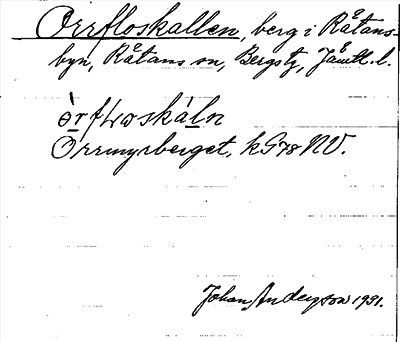 Orrfloskallen, berg i Råtans-
byn, Råtans sn, Bergs tg, Jämtl. l.
Orrmyrberget, k G78 NV.
Johan Anderson 1931.